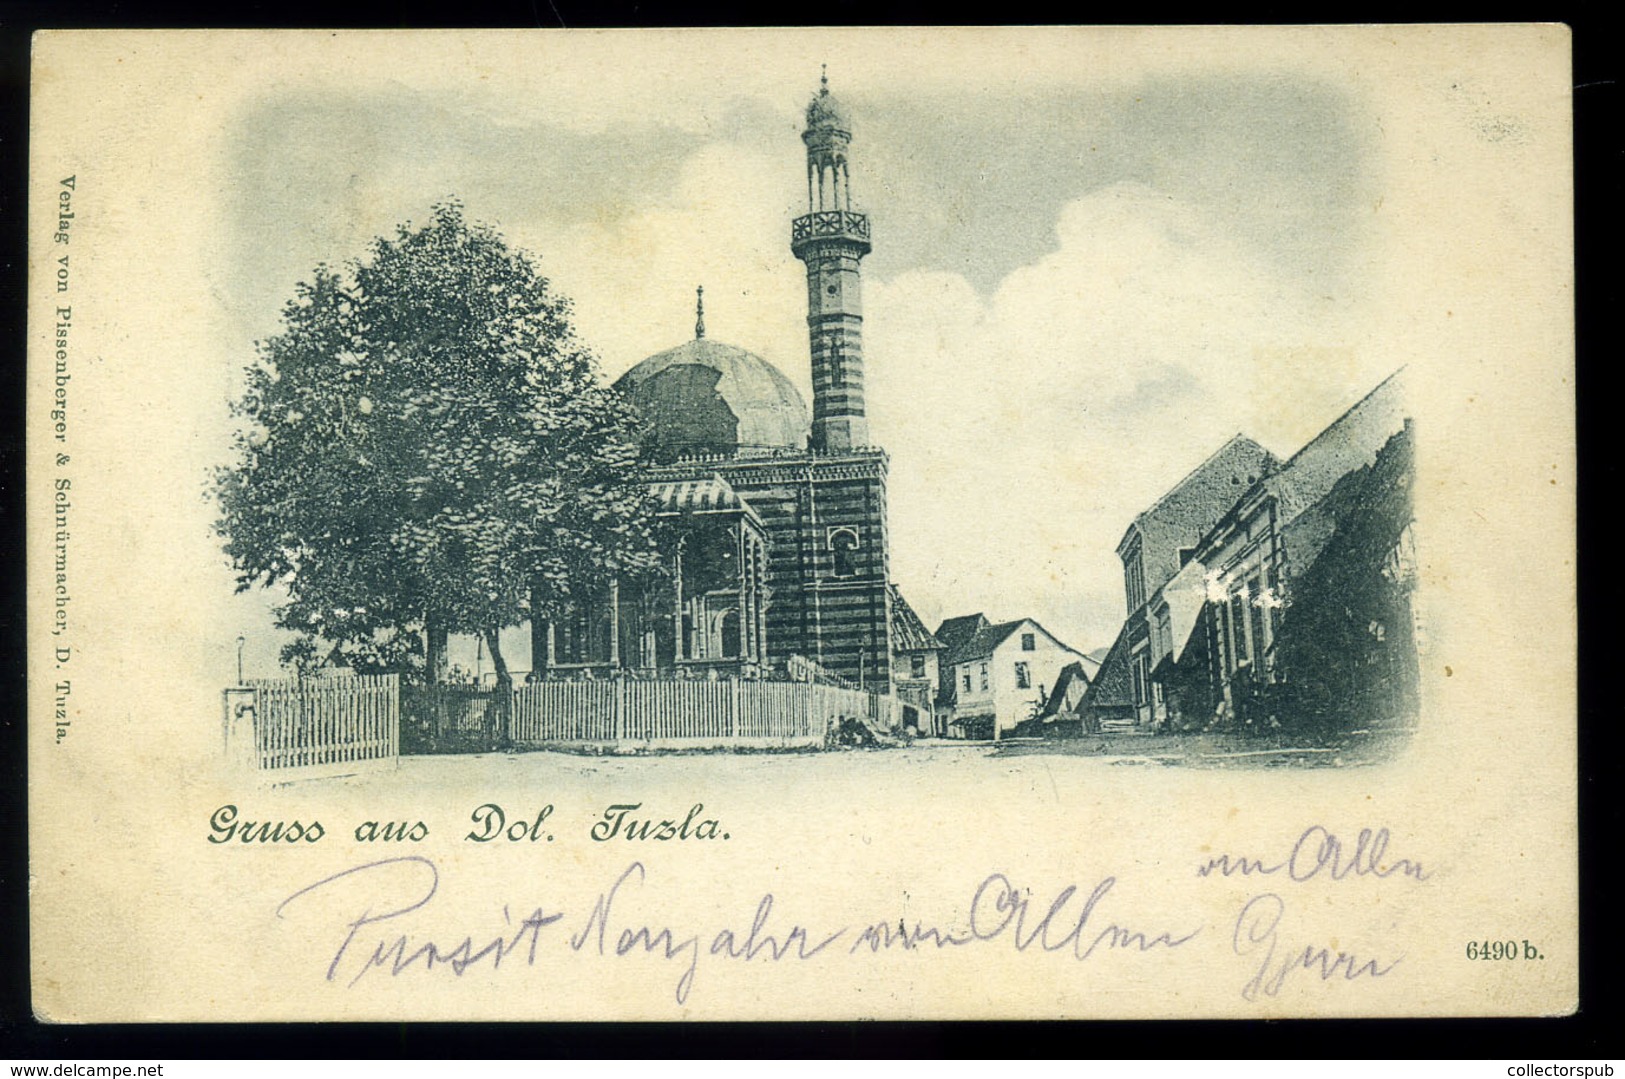 Verlag von Pissenberger & Schnürmacher, D. Tuzla.
Gruss aus Dol. Tuzla.
an Alln
Pursit Neujahr von Allen
6490 b.
www.delcampe.net
collectorspub